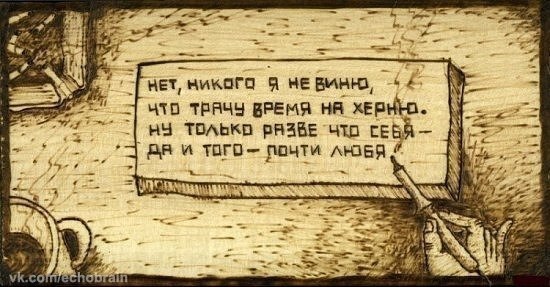 НЕТ, НИКОГО Я НЕ ВИНЮ,
ЧТО ТРАЧУ ВРЕМЯ НА ХЕРНЮ.
НУ ТОЛЬКО РАЗВЕ ЧТО СЕБЯ –
ДА И ТОГО – ПОЧТИ ЛЮБЯ
vk.com/echobrain